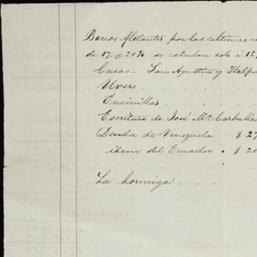 Bonos flotantes por las ultimas
de 17 @ 20% se calculan solo a 15
Casas. San Agustin y
Uvero
Encinillos
Escritura de José Mª Carballo
Deuda de Venezuela $ 27
idem del Ecuador " $ 20
La hormiga